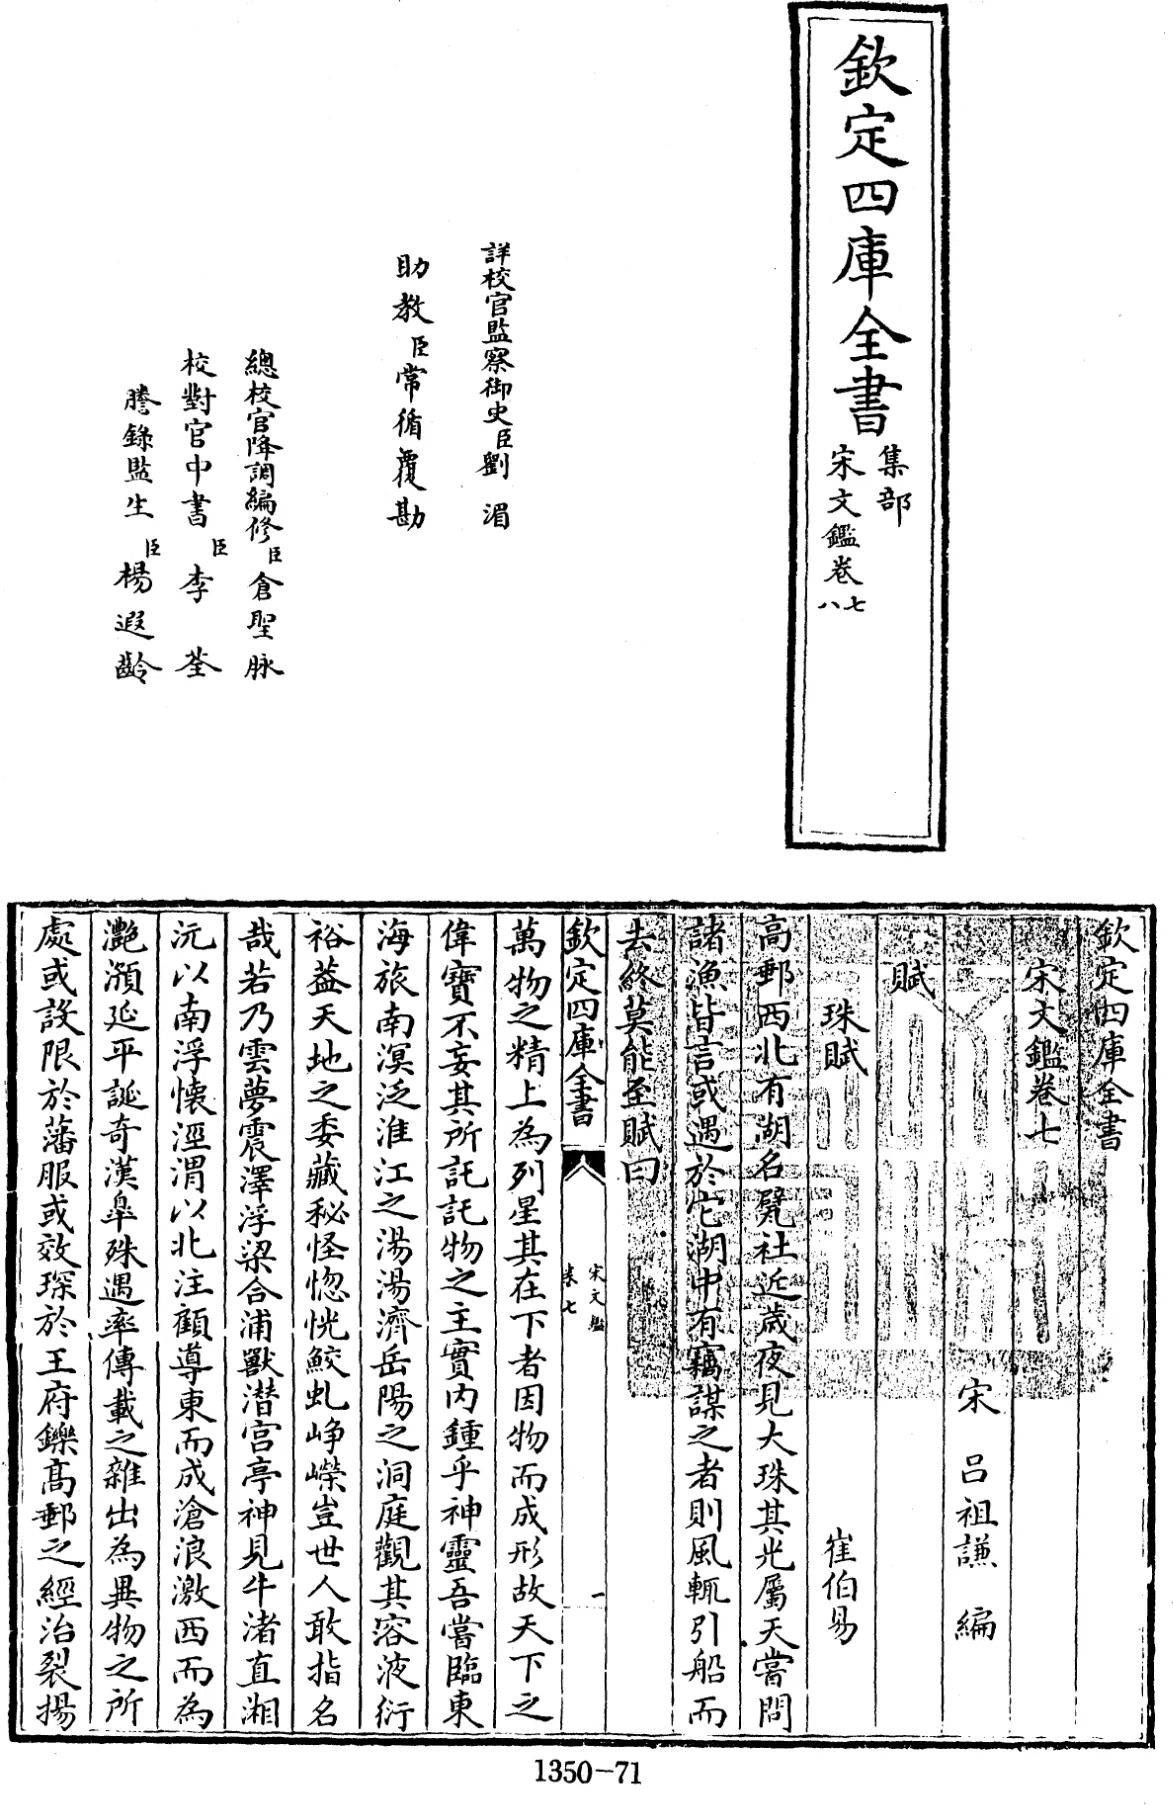 欽定四庫全書
集部
宋文鑑卷七
八
詳校官監察御史臣劉湄
助教臣常循覆勘
總校官降調編修臣倉聖脉
校對官中書臣李荃
謄錄監生臣楊遐齡
欽定四庫全書
宋文鑑卷七
宋 呂祖謙 編
賦
珠賦 崔伯易
高郵西北有湖名甓社近歲夜見大珠其光屬天嘗問
諸漁皆言或遇於它湖中有竊謀之者則風輒引船而
去終莫能至賦曰
欽定四庫全書
宋文鑑
卷七
一
萬物之精上為列星其在下者因物而成形故天下之
偉寶不妄其所託託物之主實内鍾乎神靈吾嘗臨東
海旅南溟泛淮江之湯湯濟岳陽之洞庭觀其容液衍
裕葢天地之委藏秘怪惚恍鮫虬崢嶸豈世人敢指名
哉若乃雲夢震澤浮梁合浦獸潜宫亭神見牛渚直湘
沅以南浮懐涇渭以北注顧導東而成滄浪激西而為
灔澦延平誕奇漢皐殊遇率傳載之雜出為異物之所
處或設限於藩服或效琛於王府鑠髙郵之經治裂揚
1350-71